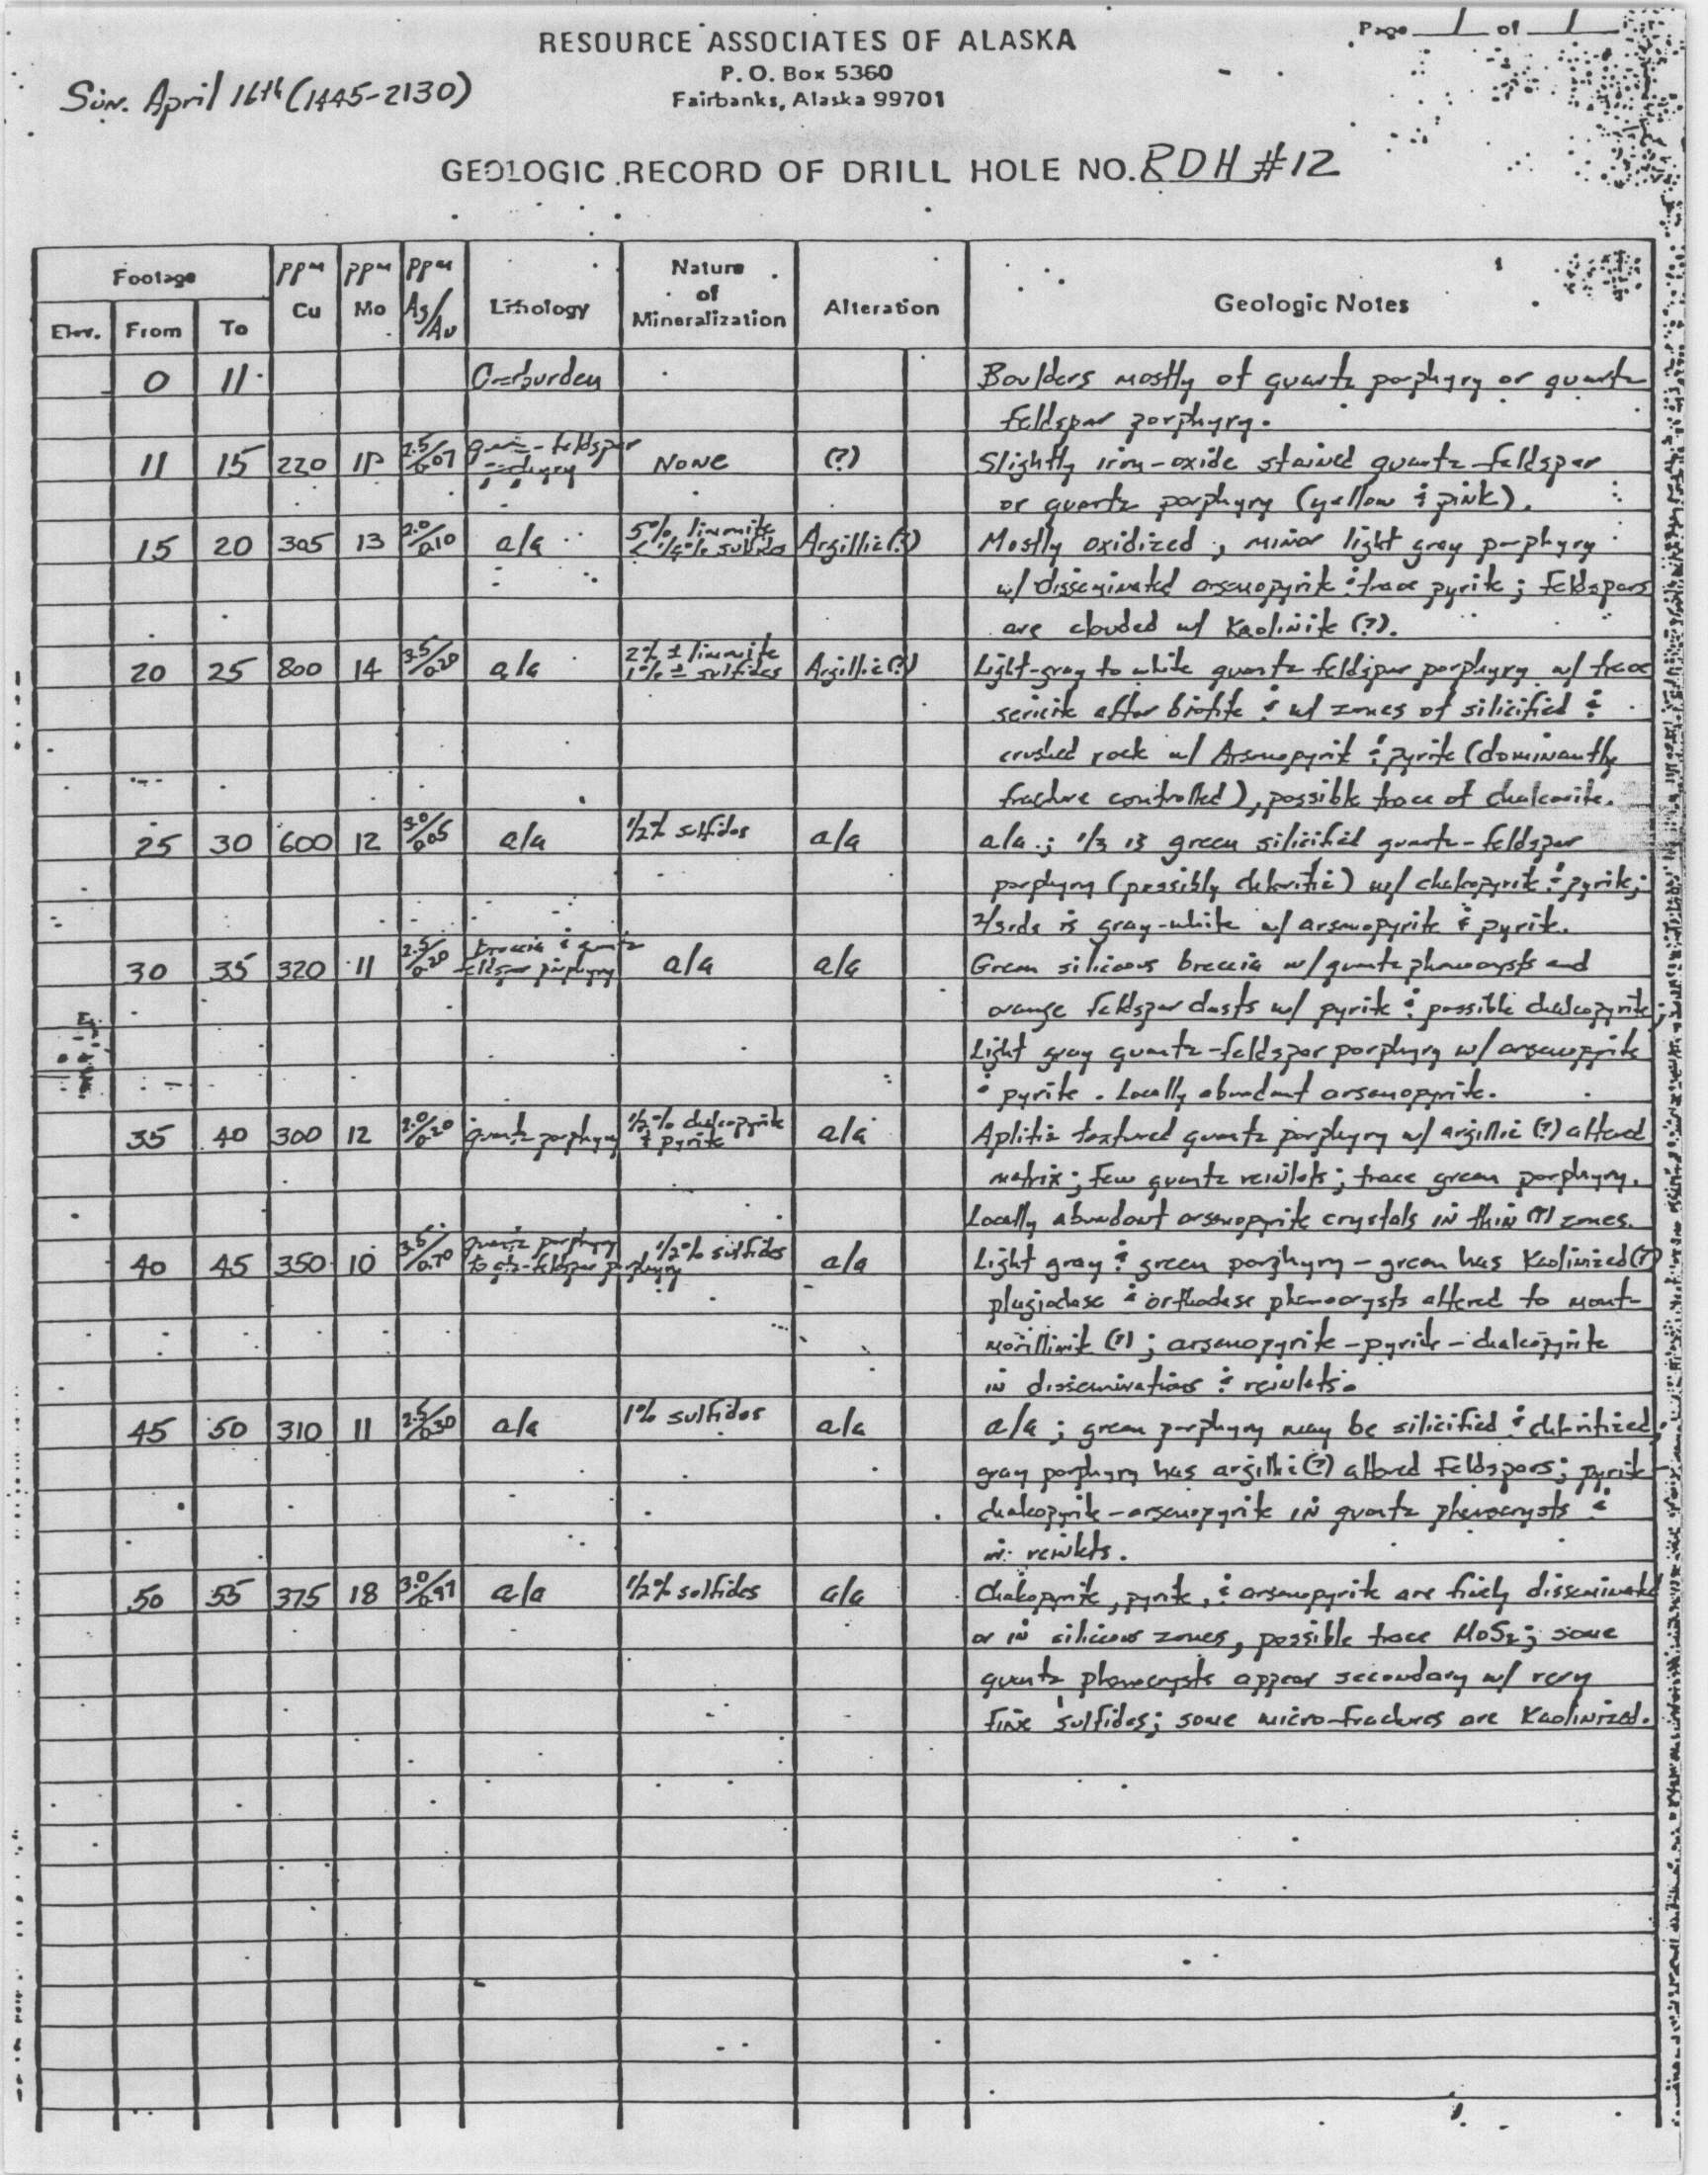 Page 1 of 1
RESOURCE ASSOCIATES OF ALASKA
P. O. Box 5360
Fairbanks, Alaska 99701
Sun. April 16th (1445-2130)
GEOLOGIC RECORD OF DRILL HOLE NO. RDH #12
Footage ppm ppm ppm Nature
Elev. From To Cu Mo Ag/Au Lithology of Alteration Geologic Notes
Mineralization
0 11 Overburden Boulders mostly of quartz porphyry or quartz
feldspar porphyry.
11 15 220 2.5/ quartz-feldspar None (?) Slightly iron-oxide stained quartz-feldspar
or quartz porphyry (yellow & pink).
15 20 305 13 2.0/0.10 a/a 5% limonite <1/4% sulfides Argillic(?) Mostly oxidized, minor light gray porphyry
w/ disseminated arsenopyrite & trace pyrite; feldspars
are clouded w/ Kaolinite (?).
20 25 800 14 3.5/0.20 a/a 2% ± limonite 1% ± sulfides Argillic(?) Light-gray to white quartz feldspar porphyry w/ trace
sericite after biotite & w/ zones of silicified &
crushed rock w/ Arsenopyrite & pyrite (dominantly
fracture controlled), possible trace of chalcocite.
25 30 600 12 3.0/0.05 a/a 1/2% sulfides a/a a/a.; 1/3 is green silicified quartz-feldspar
porphyry (possibly chloritic) w/ chalcopyrite & pyrite;
2/3rds is gray-white w/ arsenopyrite & pyrite.
30 35 320 11 2.5/0.20 breccia & quartz feldspar porphyry a/a a/a Green siliceous breccia w/ quartz phenocrysts and
orange feldspar clasts w/ pyrite & possible chalcopyrite;
Light gray quartz-feldspar porphyry w/ arsenopyrite
& pyrite. Locally abundant arsenopyrite.
35 40 300 12 2.0/0.20 quartz porphyry 1/2% chalcopyrite & pyrite a/a Aplitic textured quartz porphyry w/ argillic (?) altered
matrix; few quartz veinlets; trace green porphyry.
Locally abundant arsenopyrite crystals in thin (?) zones.
40 45 350 10 3.5/0.70 quartz porphyry to qtz-feldspar porphyry 1/2% sulfides a/a Light gray & green porphyry - green has Kaolinized(?)
plagioclase & orthoclase phenocrysts altered to mont-
morillinite (?); arsenopyrite-pyrite-chalcopyrite
in disseminations & veinlets.
45 50 310 11 2.5/0.30 a/a 1% sulfides a/a a/a; green porphyry may be silicified & chloritized;
gray porphyry has argillic(?) altered feldspars; pyrite-
chalcopyrite-arsenopyrite in quartz phenocrysts &
in veinlets.
50 55 375 18 3.0/ a/a 1/2% sulfides a/a Chalcopyrite, pyrite, & arsenopyrite are finely disseminated
or in siliceous zones, possible trace MoS2; some
quartz phenocrysts appear secondary w/ very
fine sulfides; some micro-fractures are Kaolinized.